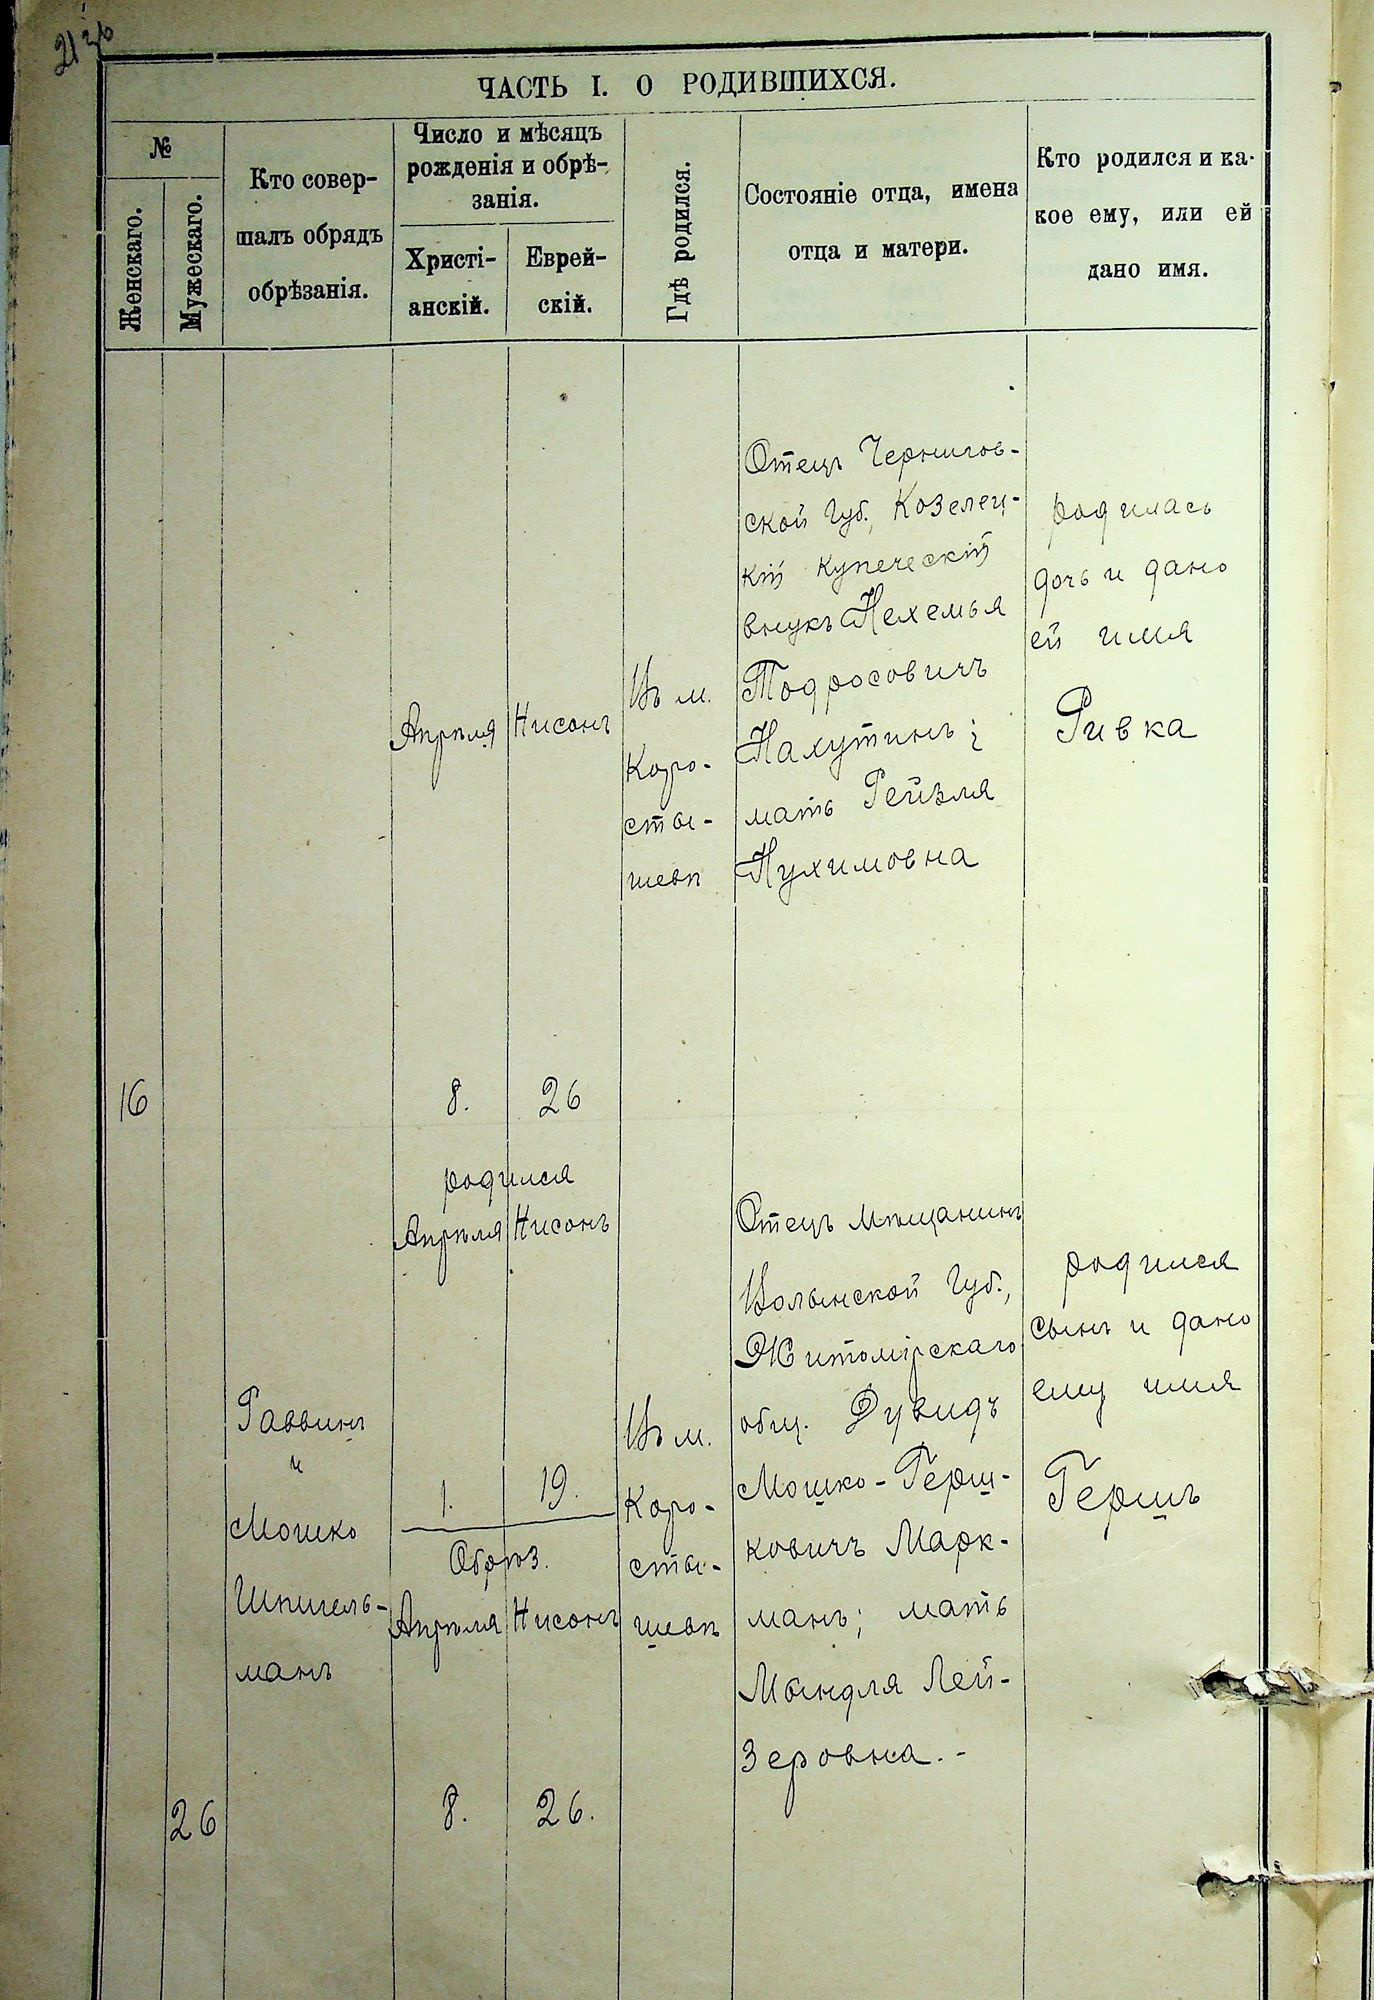 ЧАСТЬ I. О РОДИВШИХСЯ.
№
Женскаго.
Мужескаго.
Кто совер-
шалъ обрядъ
обрѣзанія.
Число и мѣсяцъ
рожденія и обрѣ-
занія.
Христі-
анскій.
Еврей-
скій.
Гдѣ родился.
Состояніе отца, имена
отца и матери.
Кто родился и ка-
кое ему, или ей
дано имя.
16
Апрѣля
8.
Нисонъ
26
Въ м.
Коро-
сты-
шевѣ
Отецъ Чернигов-
ской Губ., Козелец-
кій купеческій
внукъ Нехемья
Тодросовичъ
Нахутинъ;
мать Рейзля
Нухимовна
родилась
дочь и дано
ей имя
Ривка
26
Раввинъ
и
Мошко
Шпигель-
манъ
родился
Апрѣля
Нисонъ
1.
19.
Обрѣз.
Апрѣля
Нисонъ
8.
26.
Въ м.
Коро-
сты-
шевѣ
Отецъ мѣщанинъ
Волынской Губ.,
Житомірскаго
общ. Дувидъ
Мошко-Герш-
ковичъ Марк-
манъ; мать
Мындля Лей-
зеровна.-
родился
сынъ и дано
ему имя
Гершъ